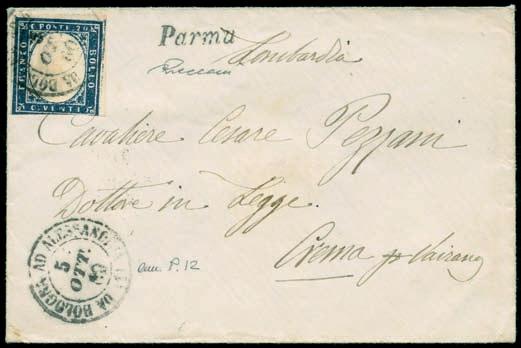 C. POSTE 20
FRANCO
BOLLO
C. VENTI
DA BOL
Parma
Lombardia
Cavaliere Cesare Pezzani
Dottore in Legge
Crema p Vairano
DA BOLOGNA AD ALESSAND
5
OTT.
am. P. 12